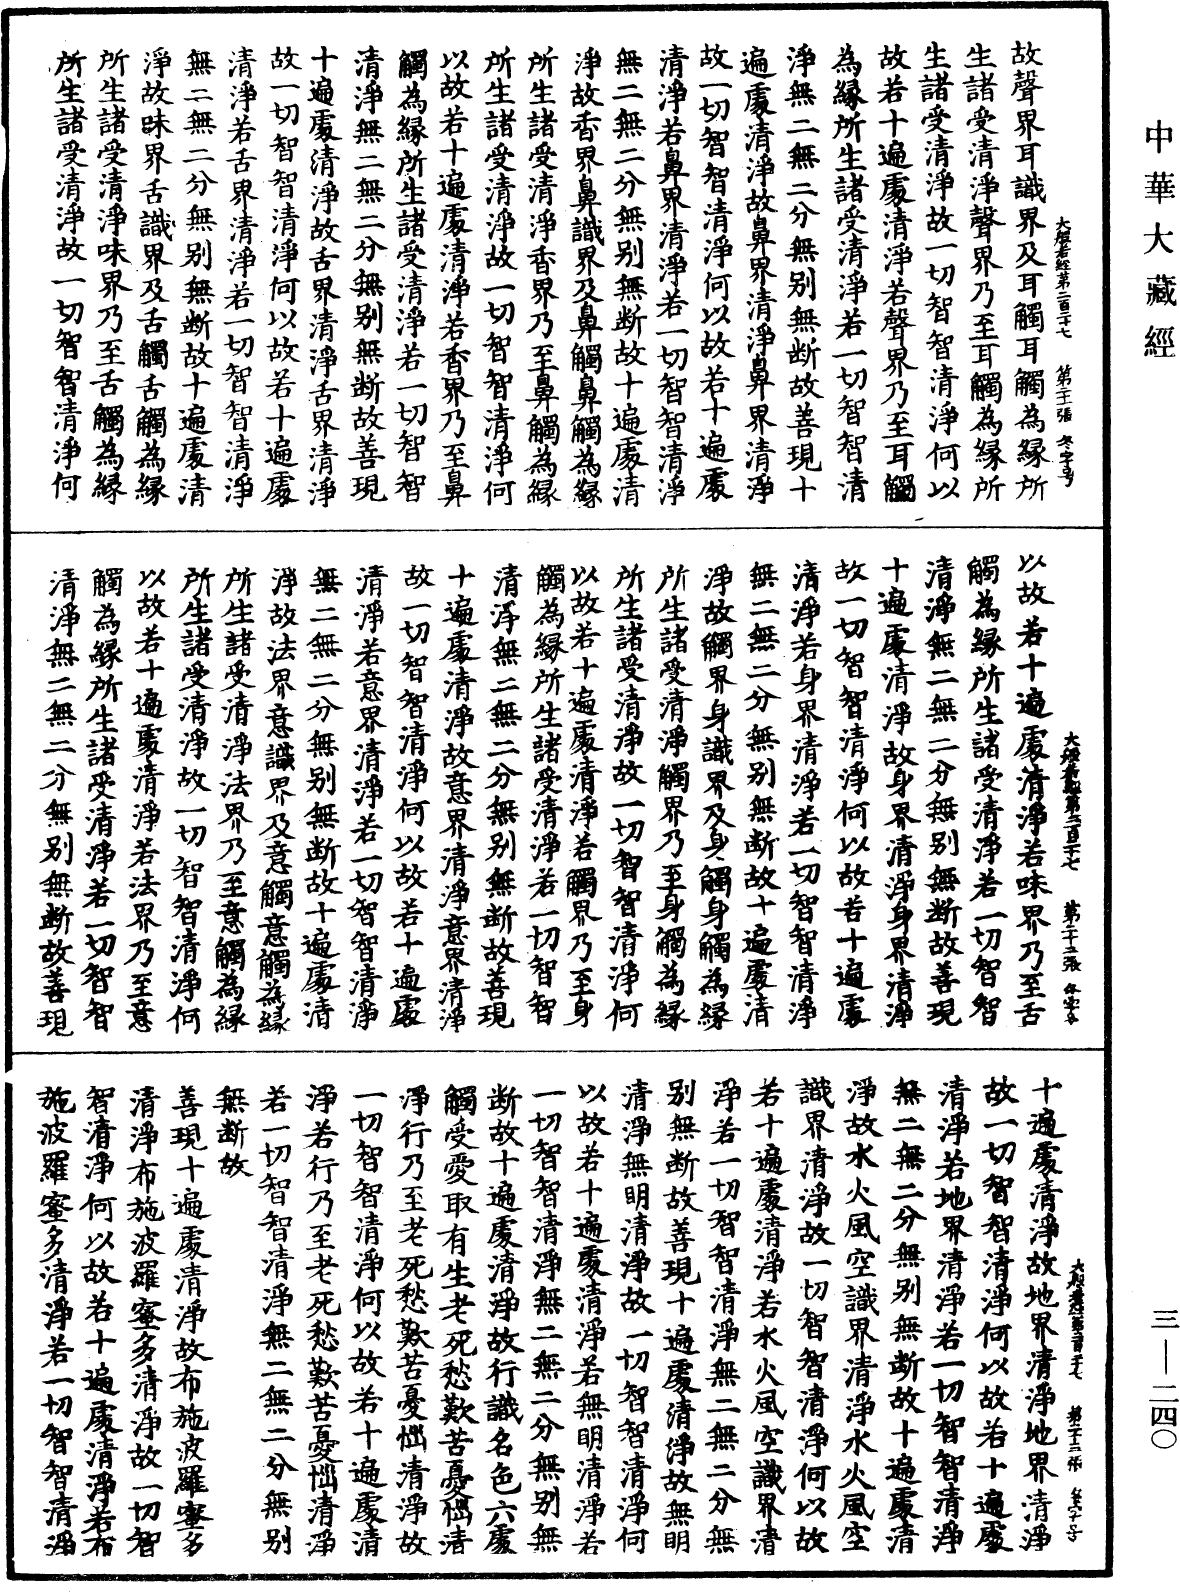 中華大藏經
大般若經第二百二十七　第二十一張　冬字号
故聲界耳識界及耳觸耳觸為緣所
生諸受清淨聲界乃至耳觸為緣所
生諸受清淨故一切智智清淨何以
故若十遍處清淨若聲界乃至耳觸
為緣所生諸受清淨若一切智智清
淨無二無二分無別無斷故善現十
遍處清淨故鼻界清淨鼻界清淨
故一切智智清淨何以故若十遍處
清淨若鼻界清淨若一切智智清淨
無二無二分無別無斷故十遍處清
淨故香界鼻識界及鼻觸鼻觸為緣
所生諸受清淨香界乃至鼻觸為緣
所生諸受清淨故一切智智清淨何
以故若十遍處清淨若香界乃至鼻
觸為緣所生諸受清淨若一切智智
清淨無二無二分無別無斷故善現
十遍處清淨故舌界清淨舌界清淨
故一切智智清淨何以故若十遍處
清淨若舌界清淨若一切智智清淨
無二無二分無別無斷故十遍處清
淨故味界舌識界及舌觸舌觸為緣
所生諸受清淨味界乃至舌觸為緣
所生諸受清淨故一切智智清淨何
大般若經第二百二十七　第二十二張　冬字号
以故若十遍處清淨若味界乃至舌
觸為緣所生諸受清淨若一切智智
清淨無二無二分無別無斷故善現
十遍處清淨故身界清淨身界清淨
故一切智智清淨何以故若十遍處
清淨若身界清淨若一切智智清淨
無二無二分無別無斷故十遍處清
淨故觸界身識界及身觸身觸為緣
所生諸受清淨觸界乃至身觸為緣
所生諸受清淨故一切智智清淨何
以故若十遍處清淨若觸界乃至身
觸為緣所生諸受清淨若一切智智
清淨無二無二分無別無斷故善現
十遍處清淨故意界清淨意界清淨
故一切智智清淨何以故若十遍處
清淨若意界清淨若一切智智清淨
無二無二分無別無斷故十遍處清
淨故法界意識界及意觸意觸為緣
所生諸受清淨法界乃至意觸為緣
所生諸受清淨故一切智智清淨何
以故若十遍處清淨若法界乃至意
觸為緣所生諸受清淨若一切智智
清淨無二無二分無別無斷故善現
大般若經第二百二十七　第二十三張　冬字号
十遍處清淨故地界清淨地界清淨
故一切智智清淨何以故若十遍處
清淨若地界清淨若一切智智清淨
無二無二分無別無斷故十遍處清
淨故水火風空識界清淨水火風空
識界清淨故一切智智清淨何以故
若十遍處清淨若水火風空識界清
淨若一切智智清淨無二無二分無
別無斷故善現十遍處清淨故無明
清淨無明清淨故一切智智清淨何
以故若十遍處清淨若無明清淨若
一切智智清淨無二無二分無別無
斷故十遍處清淨故行識名色六處
觸受愛取有生老死愁歎苦憂惱清
淨行乃至老死愁歎苦憂惱清淨故
一切智智清淨何以故若十遍處清
淨若行乃至老死愁歎苦憂惱清淨
若一切智智清淨無二無二分無別
無斷故
善現十遍處清淨故布施波羅蜜多
清淨布施波羅蜜多清淨故一切智
智清淨何以故若十遍處清淨若布
施波羅蜜多清淨若一切智智清淨
三—二四〇